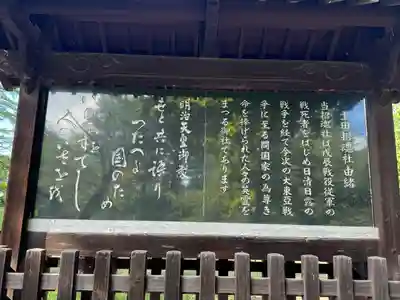 上田招魂社由緒
当招魂社は戊辰戦役従軍の
戦死者をはじめ日清日露の
戦争を経て今次の大東亜戦
争に至る間国家の為尊き
命を捧げられた人々の英霊を
まつる御社であります
明治天皇御製
世と共に語り
つたへよ
国のため
すてし
人の